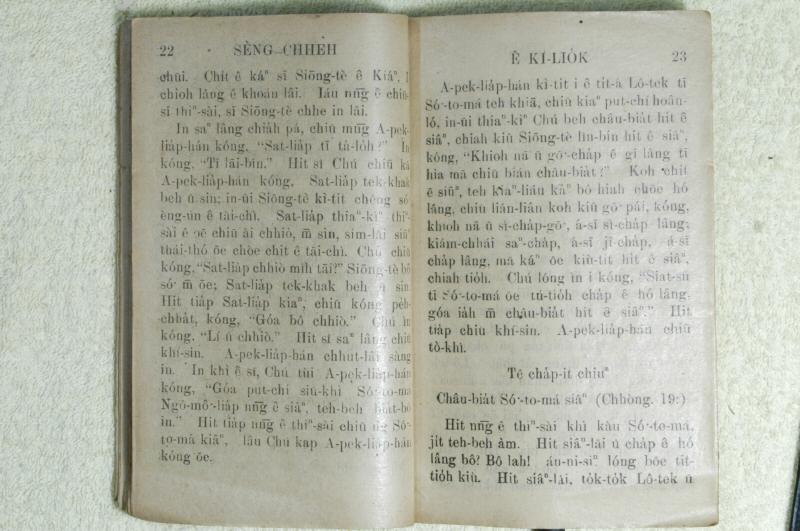 22 SÈNG-CHHEH
chūi. Chit ê káⁿ sī Siōng-tè ê Kiáⁿ,
chioh lâng ê khoán lâi. Iáu nn̄g ê chiū
sī thiⁿ-sài, sī Siōng-tè chhe in lâi.
In saⁿ lâng chia̍h pá, chiū mn̄g A-pek-
lia̍p-hán kóng, “Sat-lia̍p tī tá-lo̍h?” In
kóng, “Tī lāi-bīn.” Hit sî Chú chiū kā
A-pek-lia̍p-hán kóng, Sat-lia̍p tek-khak
beh ū sin; in-ūi Siōng-tè kì-tit chêng só͘
èng-ún ê tāi-chì. Sat-lia̍p thiaⁿ-kìⁿ thiⁿ-
sài ê ōe chiū ài chhiò, m̄ sìn, sim-lāi siūⁿ
thài-thó ōe chòe chit ê tāi-chì. Chú chiū
kóng, “Sat-lia̍p chhiò mih tāi?” Siōng-tè bô
só͘ m̄ ōe; Sat-lia̍p tek-khak beh ū sin.
Hit tia̍p Sat-lia̍p kiaⁿ, chiū kóng pe̍h-
chha̍t, kóng, “Góa bô chhiò.” Chú ìn
kóng, “Lí ū chhiò.” Hit sî saⁿ lâng chiū
khí-sin. A-pek-lia̍p-hán chhut-lâi sàng
in. In khì ê sî, Chú tùi A-pek-lia̍p-hán
kóng, “Góa put-chí siū-khì Só͘-to-má
Ngò-mô͘-lia̍p nn̄g ê siâⁿ, teh-beh bia̍t-bô
in.” Hit tia̍p nn̄g ê thiⁿ-sài chiū ǹg Só͘-
to-má kiâⁿ, lâu Chú kap A-pek-lia̍p-hán
kóng ōe.
Ê KÌ-LIO̍K 23
A-pek-lia̍p-hán kì-tit i ê ti̍t-á Lô-tek tī
Só͘-to-má teh khiā, chiū kiaⁿ put-chí hoân-
ló, in-ūi thiaⁿ-kìⁿ Chú beh châu-bia̍t hit ê
siâⁿ, chiah kiû Siōng-tè lîn-bín hit ê siâⁿ,
kóng, “Khioh nā ū gō͘-cha̍p ê gī lâng tī
hia mā chiū bián châu-bia̍t?” Koh chit
ê siâⁿ, teh kiaⁿ-liáu káⁿ bô hiah chōe hó
lâng, chiū liân-liân koh kiû gō͘ pái, kóng,
khioh nā ū sì-cha̍p-gō͘, á-sī sì-cha̍p lâng;
kiám-chhái saⁿ-cha̍p, á-sī jī-cha̍p, á-sī
cha̍p lâng, mā káⁿ ōe kiù-tit hit ê siâⁿ,
chiah tio̍h. Chú lóng ìn i kóng, “Siat-sú
tī Só͘-to-má ōe tú-tio̍h cha̍p ê hó lâng,
góa ia̍h m̄ châu-bia̍t hit ê siâⁿ.” Hit
tia̍p chiū khí-sin. A-pek-lia̍p-hán chiū
tò-khì.
Tē cha̍p-it chiuⁿ
Châu-bia̍t Só͘-to-má siâⁿ (Chhòng. 19:)
Hit nn̄g ê thiⁿ-sài khì kàu Só͘-to-má,
ji̍t teh-beh àm. Hit siâⁿ-lāi ū cha̍p ê hó
lâng bô? Bô lah! án-ni-siⁿ lóng bōe tit-
tio̍h kiù. Hit siâⁿ-lāi, to̍k-to̍k Lô-tek ū